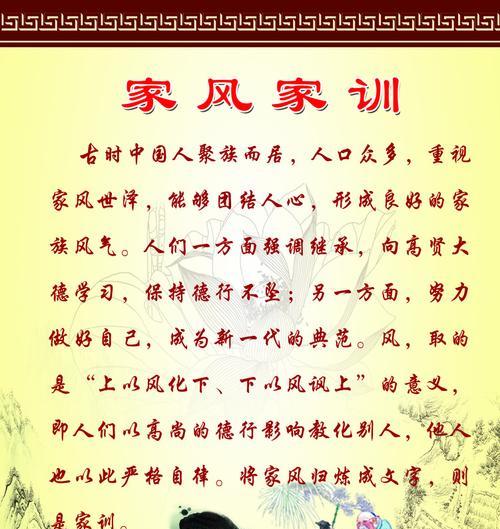 家风家训
古时中国人聚族而居，人口众多，重视
家风世泽，能够团结人心，形成良好的家
族风气。人们一方面强调继承，向高贤大
德学习，保持德行不坠；另一方面，努力
做好自己，成为新一代的典范。风，取的
是“上以风化下、下以风讽上”的意义，
即人们以高尚的德行影响教化别人，他人
也以此严格自律。将家风归炼成文字，则
是家训。